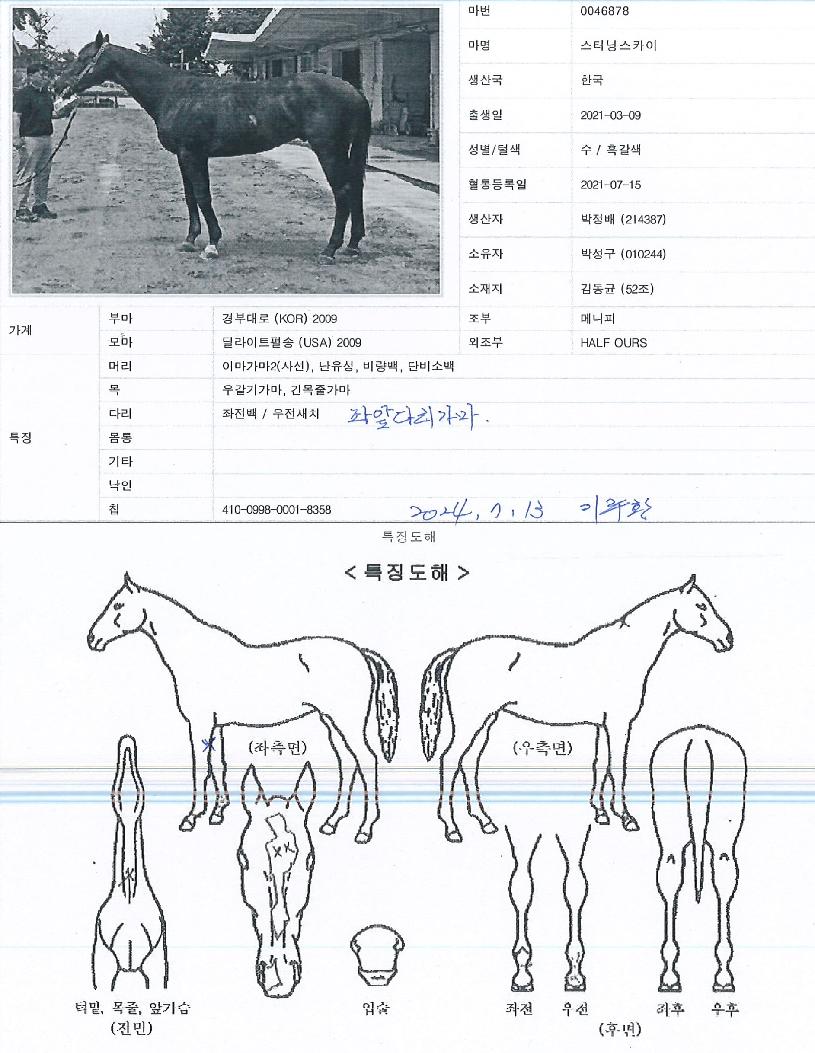 마번 0046878
마명 스터닝스카이
생산국 한국
출생일 2021-03-09
성별/털색 수 / 흑갈색
혈통등록일 2021-07-15
생산자 박정배 (214387)
소유자 박성구 (010244)
소재지 김동균 (52조)
가계 부마 경부대로 (KOR) 2009 조부 메니피
모마 딜라이트펄송 (USA) 2009 외조부 HALF OURS
특징 머리 이마가마2(사선), 난유성, 비량백, 단비소백
목 우갈기가마, 긴목줄가마
다리 좌전백 / 우전새치 좌앞다리가마.
몸통
기타
낙인
칩 410-0998-0001-8358 2024. 7. 13
특징도해
< 특징도해 >
(좌측면) (우측면)
턱밑, 목줄, 앞가슴 입술 좌전 우전 좌후 우후
(전면) (후면)